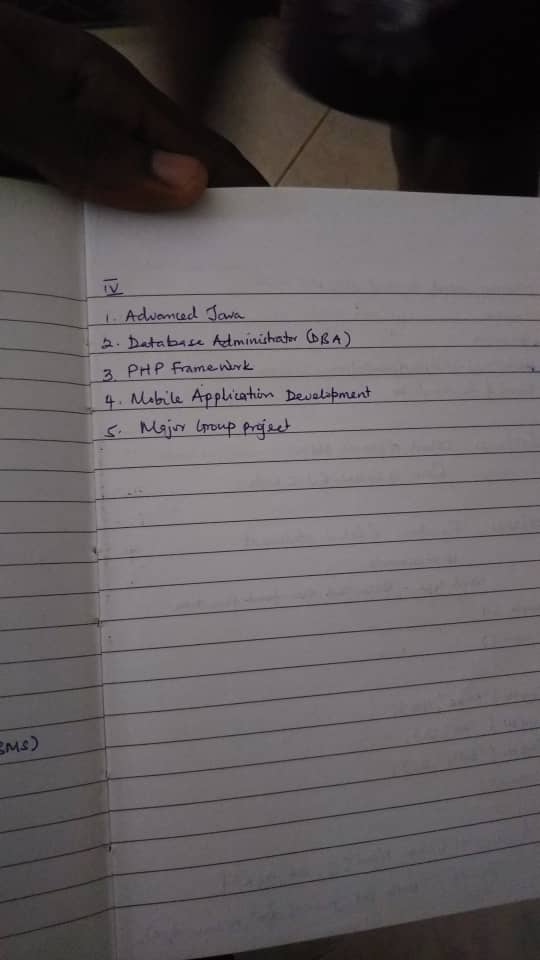 IV
1. Advanced Java
2. Database Administrator (DBA)
3. PHP Framework
4. Mobile Application Development
5. Major Group project
BMS)